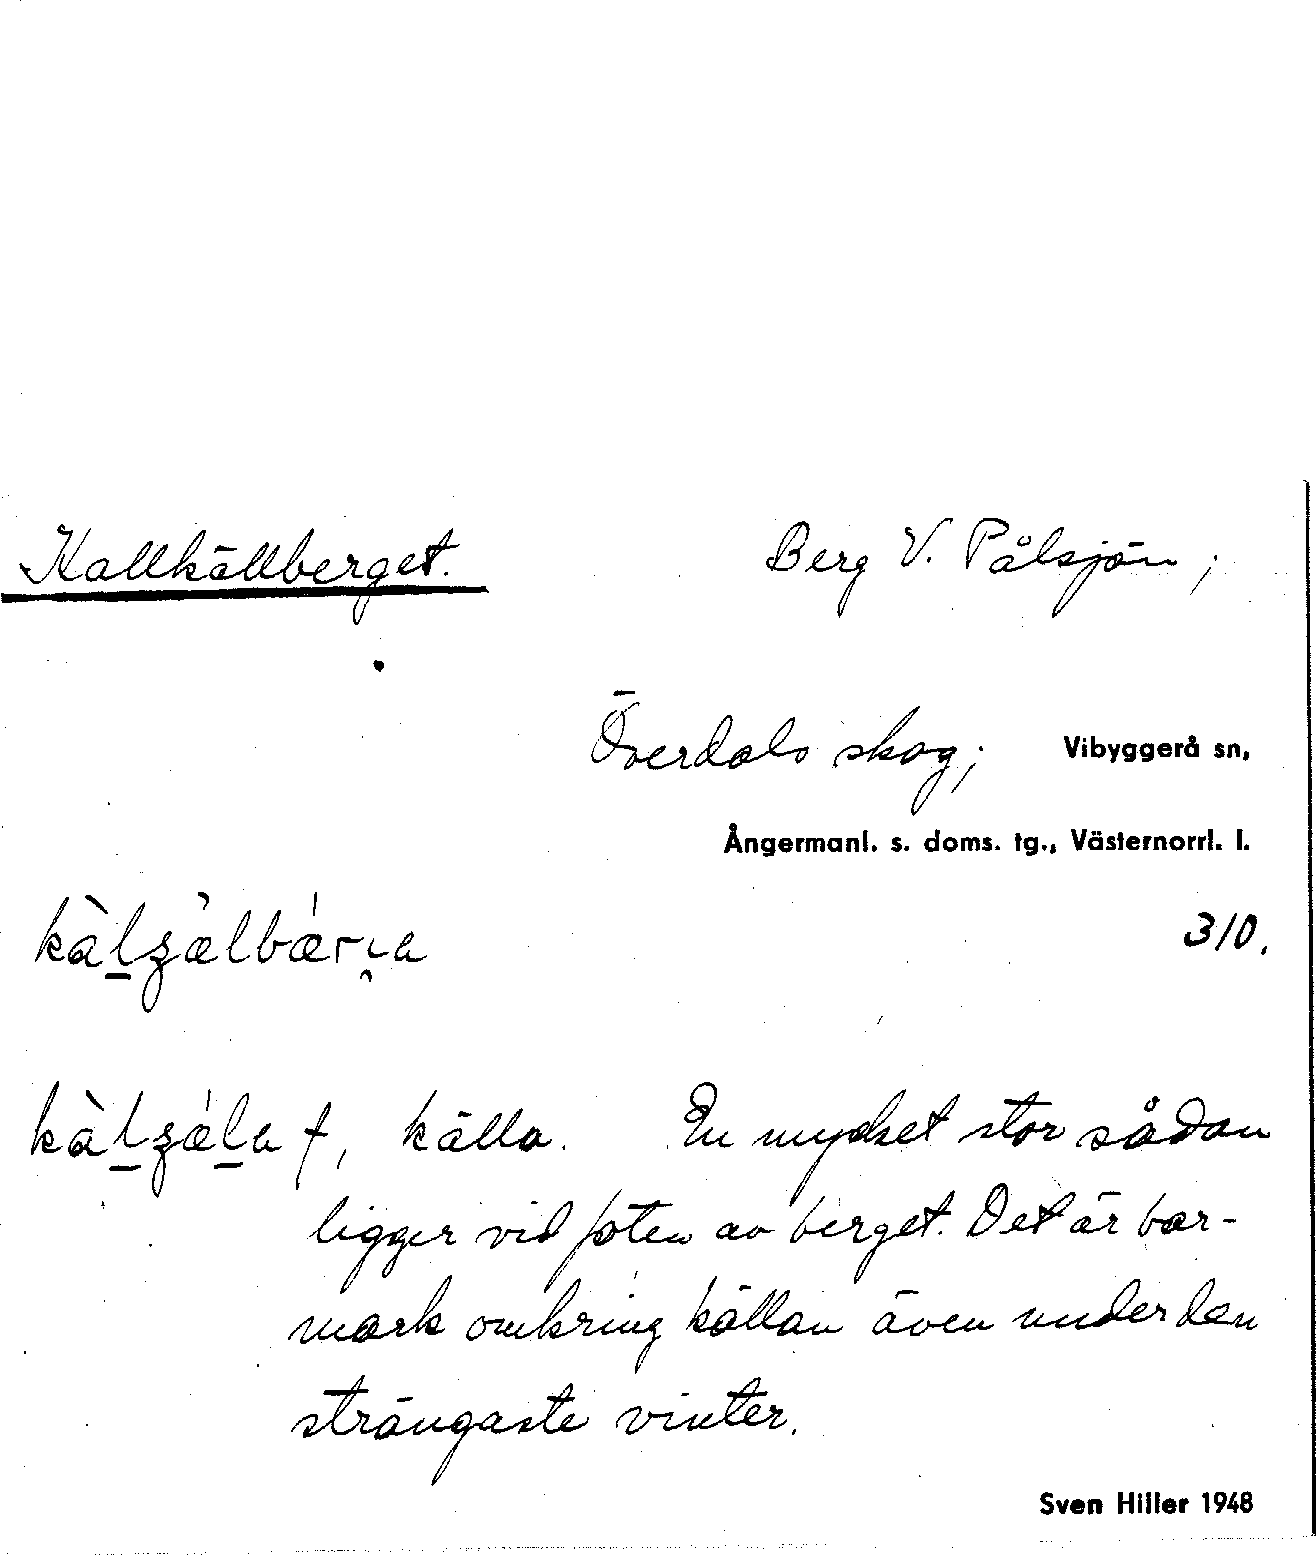 Kallkällberget. Berg V. Pålsjön;
Överdals skog; Vibyggerå sn,
Ångermanl. s. doms. tg., Västernorrl. l.
310.
källa. En mycket stor sådan
ligger vid foten av berget. Det är bar-
mark omkring källan även under den
strängaste vinter.
Sven Hiller 1948